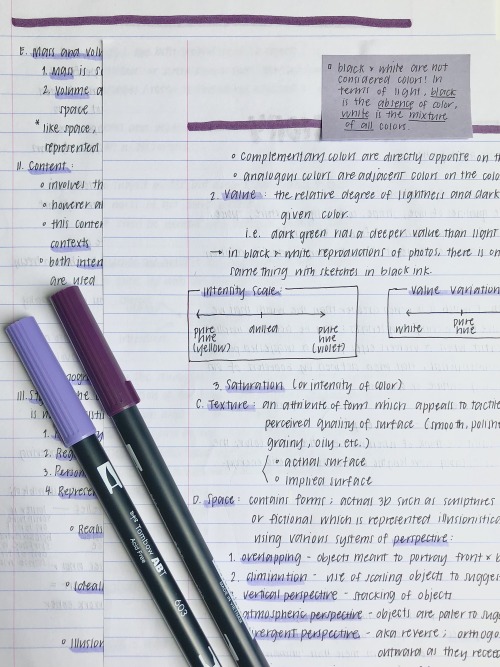 E. Mass and Volu
1. Mass is s
2. volume a
space
* like space,
represented
II. Content:
o involves th
o however a
o this conten
contexts
o both inten
are used
III. S
is n
1.
2. Reg
3. Person
4. Represen
o Realis
o Ideali
o Illusion
o black & white are not
considered colors! In
terms of light, black
is the absence of color,
white is the mixture
of all colors.
o complementary colors are directly opposite on th
o analogous colors are adjacent colors on the colo
2. Value: the relative degree of lightness and dark
given color.
i.e. dark green has a deeper value than light
→ in black & white reproductions of photos, there is on
same thing with sketches in black ink.
intensity scale:
pure hue (yellow)
dulled
pure hue (violet)
value variation
white
pure hue
3. Saturation (or intensity of color)
C. Texture: an attribute of form which appeals to tactile
perceived quality of surface (smooth, polish
grainy, oily, etc.)
o actual surface
o implied surface
D. Space: contains forms; actual 3D such as sculptures
or fictional which is represented illusionistic
using various systems of perspective:
1. overlapping - objects meant to portray front & b
2. diminution - use of scaling objects to sugges
vertical perspective - stacking of objects
atmospheric perspective - objects are paler to sug
vergent perspective - aka reverse; orthogo
outward as they reced
Tombow ABT
Acid Free
603